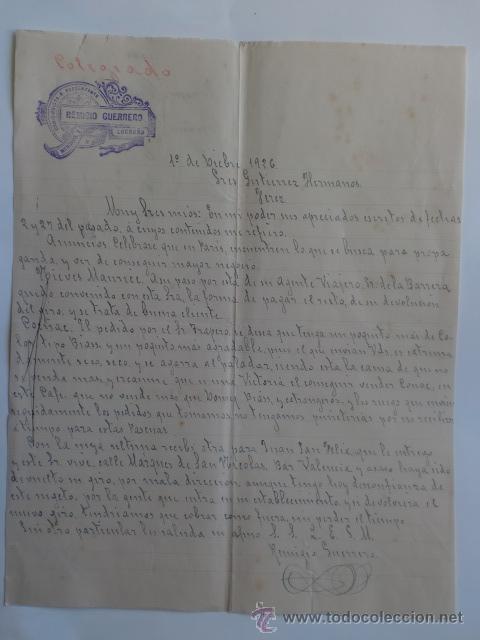 Colorado
REMIGIO GUERRERO
LOGROÑO
1º de Dicbre 1926
Sres Gutierrez Hermanos.
Jerez
Muy Sres mios: En mi poder sus apreciados escritos de fechas
2 y 27 del pasado, á cuyos contenidos me refiero.
Anuncios. Celébrase que en Paris, encuentren lo que se busca para propa
ganda, y ver de conseguir mayor negocio.
Nieves Maurice. A su paso por esta de su Agente Viajero, Sr. de la Barrera
quedó convenido con esta Sra, la forma de pagar el resto, de su devolucion
del giro, y se trata de buena cliente.
Coñac. El pedido por el Sr. Trapero, se desea que tenga un poquito mas de Co-
lor tipo Bian y un poquito mas agradable, pues el que envian Vds. es extrema
damente seco, seco, y se agarra al paladar, siendo esta la causa de que no
se venda mas, y creanme que es una Victoria el conseguir vender Coñac, en
este Cafe, que no vende mas que Domecq, Bian, y extrangeros, y les ruego que envien
seguidamente los pedidos que tomamos, no tengamos puñeterias por no recibir
a tiempo para estas Pascuas.
Con la suya ultima recibi, otra para Juan San Felix, que le entregó
y este Sr vive, calle Marques de San Nicolas, Bar Valencia y acaso haya sido
devuelto su giro, por mala direccion, aunque tengo hoy desconfianza de
este sugeto, por la gente que entra en su establecimiento y si devolviera el
nuevo giro, tendriamos que cobrar como fuera, sin perder el tiempo
Sin otro particular les saluda su afmo S. S. Q. E. S. M.
Remigio Guerrero
todocoleccion
www.todocoleccion.net